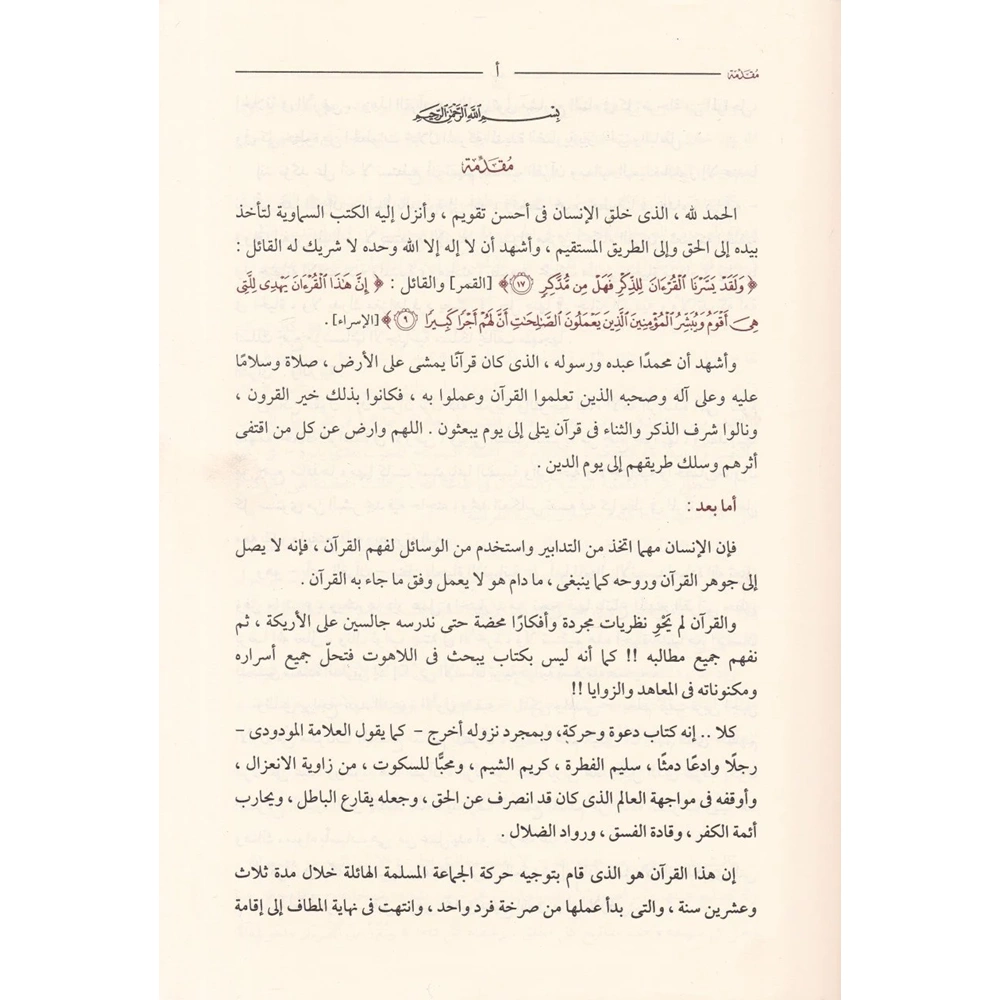 مُقَدِّمَة أ
بِسْمِ اللَّهِ الرَّحْمَنِ الرَّحِيمِ
مُقَدِّمَة
الحمد لله ، الذى خلق الإنسان فى أحسن تقويم ، وأنزل إليه الكتب السماوية لتأخذ
بيده إلى الحق وإلى الطريق المستقيم ، وأشهد أن لا إله إلا الله وحده لا شريك له القائل :
﴿ وَلَقَدْ يَسَّرْنَا الْقُرْءَانَ لِلذِّكْرِ فَهَلْ مِن مُّدَّكِرٍ ١٧ ﴾ [القمر] والقائل : ﴿ إِنَّ هَٰذَا الْقُرْءَانَ يَهْدِى لِلَّتِى
هِىَ أَقْوَمُ وَيُبَشِّرُ الْمُؤْمِنِينَ الَّذِينَ يَعْمَلُونَ الصَّالِحَاتِ أَنَّ لَهُمْ أَجْرًا كَبِيرًا ٩ ﴾ [الإسراء] .
وأشهد أن محمدًا عبده ورسوله ، الذى كان قرآنًا يمشى على الأرض ، صلاة وسلامًا
عليه وعلى آله وصحبه الذين تعلموا القرآن وعملوا به ، فكانوا بذلك خير القرون ،
ونالوا شرف الذكر والثناء فى قرآن يتلى إلى يوم يبعثون . اللهم وارض عن كل من اقتفى
أثرهم وسلك طريقهم إلى يوم الدين .
أما بعد :
فإن الإنسان مهما اتخذ من التدابير واستخدم من الوسائل لفهم القرآن ، فإنه لا يصل
إلى جوهر القرآن وروحه كما ينبغى ، ما دام هو لا يعمل وفق ما جاء به القرآن .
والقرآن لم يَحْوِ نظريات مجردة وأفكارًا محضة حتى ندرسه جالسين على الأريكة ، ثم
نفهم جميع مطالبه !! كما أنه ليس بكتاب يبحث فى اللاهوت فتحلّ جميع أسراره
ومكنوناته فى المعاهد والزوايا !!
كلا .. إنه كتاب دعوة وحركة، وبمجرد نزوله أخرج – كما يقول العلامة المودودى –
رجلًا وادعًا دمثًا ، سليم الفطرة ، كريم الشيم ، ومحبًّا للسكوت ، من زاوية الانعزال ،
وأوقفه فى مواجهة العالم الذى كان قد انصرف عن الحق ، وجعله يقارع الباطل ، ويحارب
أئمة الكفر ، وقادة الفسق ، ورواد الضلال .
إن هذا القرآن هو الذى قام بتوجيه حركة الجماعة المسلمة الهائلة خلال مدة ثلاث
وعشرين سنة ، والتى بدأ عملها من صرخة فرد واحد ، وانتهت فى نهاية المطاف إلى إقامة